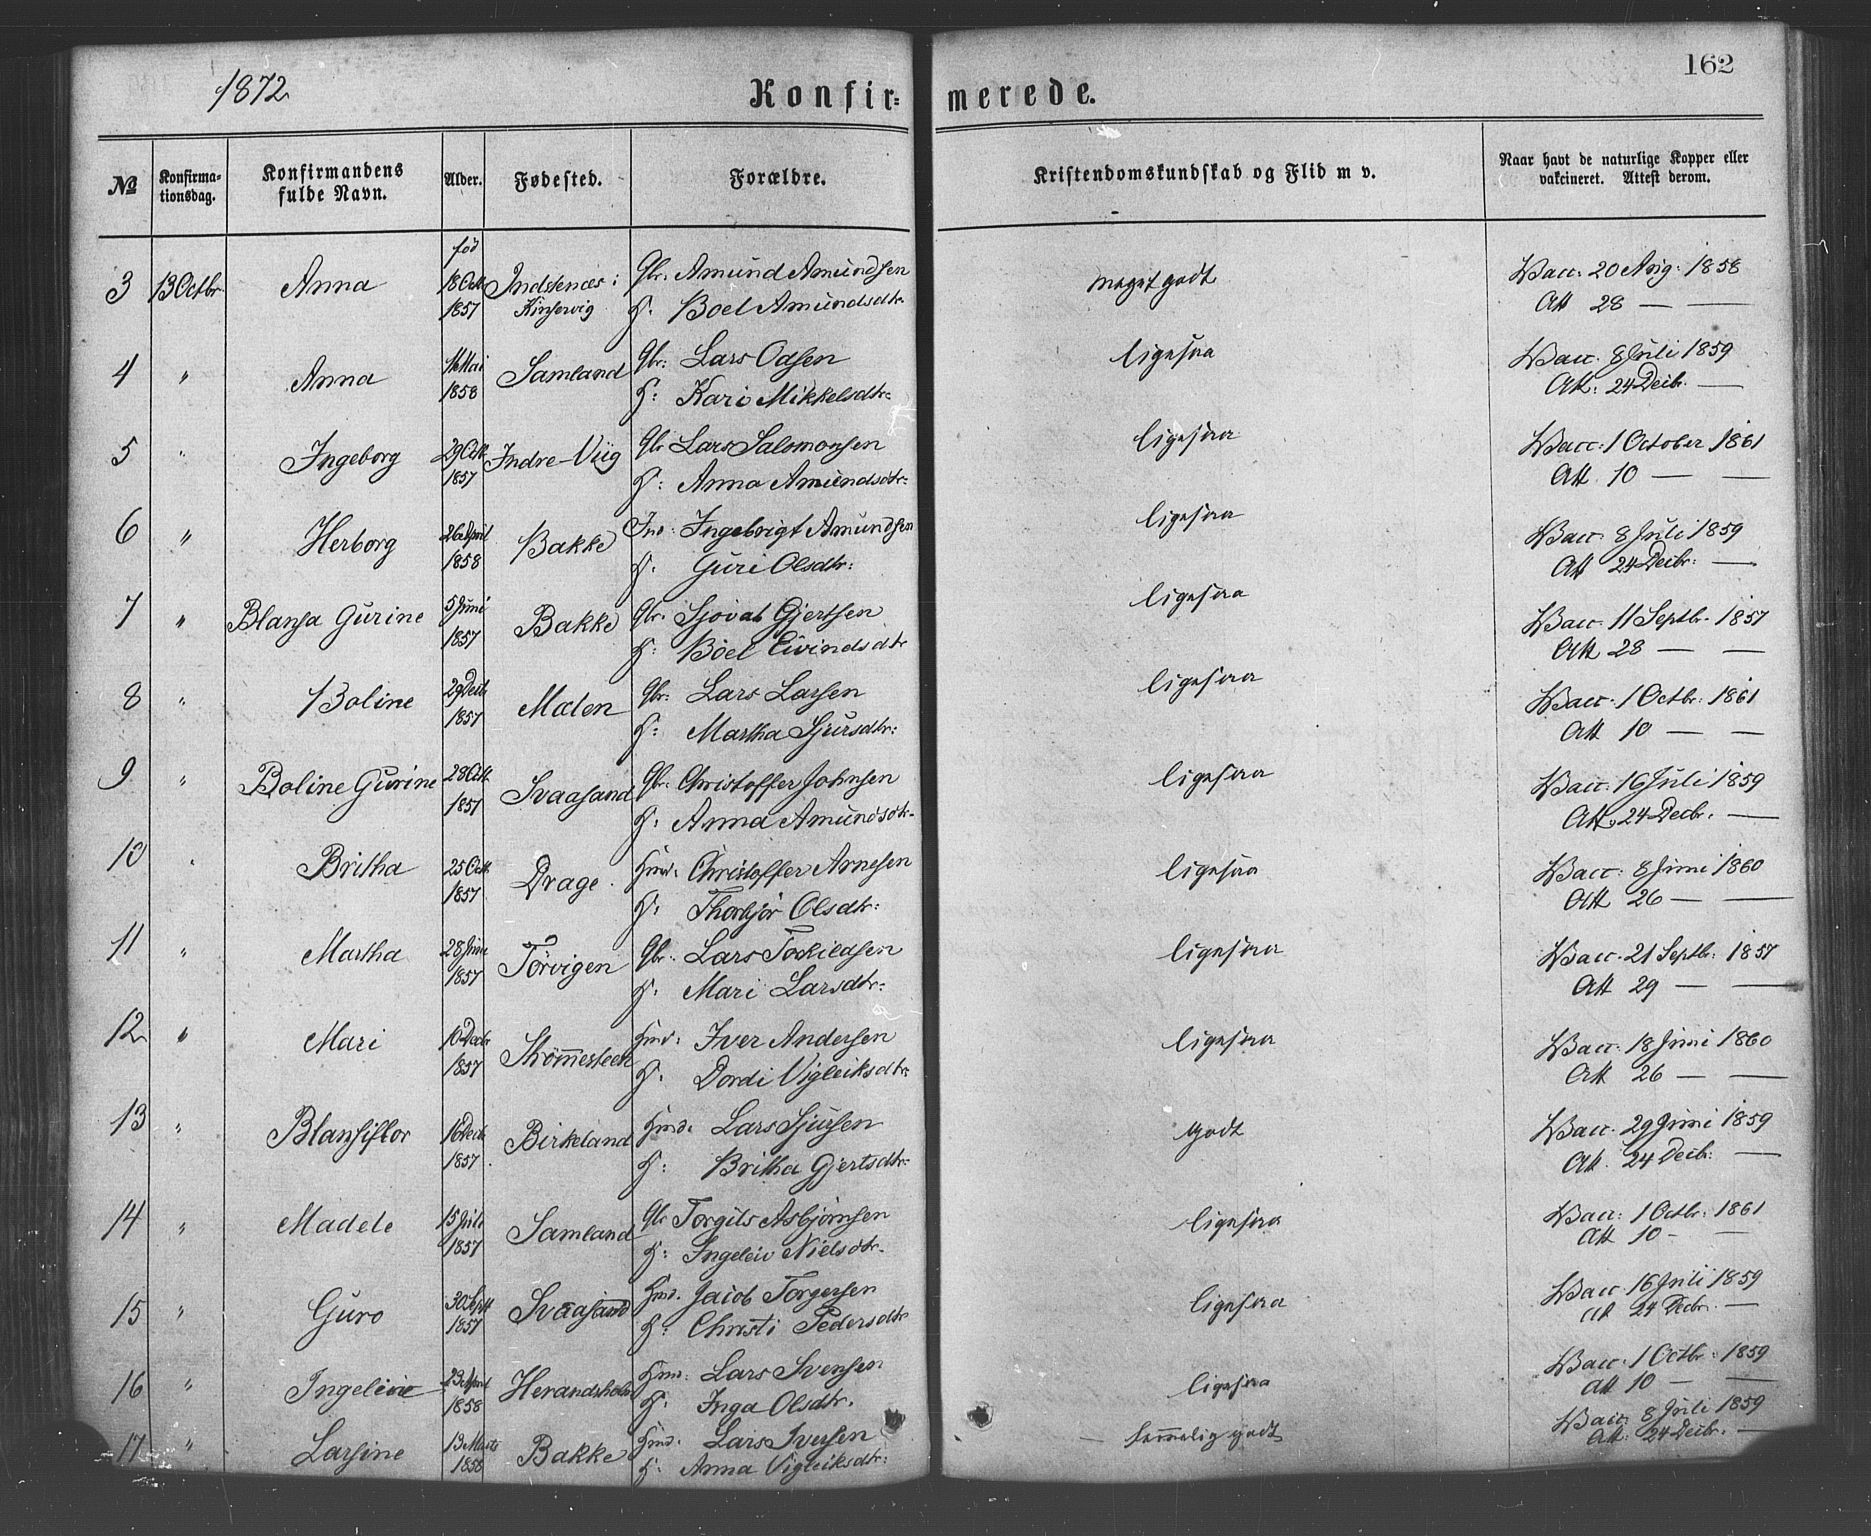 1872
Konfir-merede.
162
No
Konfirma-tionsdag.
Konfirmandens fulde Navn.
Alder.
Fødested.
Forældre.
Kristendomskundskab og Flid m v.
Naar havt de naturlige Kopper eller vakcineret. Attest derom.
3 13 Octbr. Anna fød 18 Oct. 1857 Indstenæs i Kinservig Gbr. Amund Amundsen meget godt Vacc. 20 Aug. 1858
H. Boel Amundsdtr. Att 28 — —
4 " Anna Mai 1858 Samland Gbr: Lars Odsen ligesaa Vacc. 8 Juli 1859
H: Kari Mikkelsdtr. Att: 24 Decbr. —
5 " Ingeborg 29 Oct. 1857 Indre-Viig Gbr Lars Salomonsen ligesaa Vacc. 1 October 1861
H: Anna Amundsdtr. Att. 10 — —
6 " Herborg 26 April 1858 Bakke Ind: Ingebrigt Amundsen ligesaa Vacc. 8 Juli 1859
H. Guri Olsdtr: Att 24 Decbr: —
7 " Blansa Gurine 5 Juni 1857 Bakke Gbr. Sjovat Gjertsen ligesaa Vacc. 11 Septbr. 1857
H: Boel Eivindsdtr Att 28 — —
8 " Boline 29 Decb. 1857 Mælen Gbr: Lars Larsen ligesaa Vacc. 1 Octbr. 1861
H: Martha Sjursdtr: Att 10 — —
9 " Boline Gurine 28 Oct. 1857 Svaasand Gbr. Christoffer Johnsen ligesaa Vacc. 16 Juli 1859
H: Anna Amundsdtr. Att. 24 Decbr. —
10 " Britha 25 Oct. 1857 Drage Hmd: Christoffer Arnesen ligesaa Vacc. 8 Juni 1860
H: Thorbjør Olsdtr: Att 26 — —
11 " Martha 28 Juni 1857 Törvigen Gbr.: Lars Torkildsen ligesaa Vacc. 21 Septbr: 1857
H. Mari Larsdtr. Att 29 — —
12 " Mari 10 Decbr 1857 Strømmesteen Hmd: Iver Andersen ligesaa Vacc: 18 Juni 1860
H. Dordi Vigleiksdtr: Att 26 — —
13 " Blansiflor 16 Decb. 1857 Birkeland Hmd. Lars Sjursen godt Vacc. 29 Juni 1859
H: Britha Gjertsdtr. Att. 24 Decbr. —
14 " Madele 15 Juli 1857 Samland Gbr Torgils Asbjørnsen ligesaa Vacc: 1 Octbr. 1861
H: Ingeleiv Nielsdtr. Att 10 — —
15 " Guro 30 Sept 1857 Svaasand Hmd. Jacob Torgersen ligesaa Vacc 16 Juli 1859
H: Christi Pedersdtr Att 24 Decbr. —
16 " Ingeleiv 23 April 1858 Herandsholm Hmd: Lars Svensen ligesaa Vacc. 1 Octbr. 1859
H. Inga Olsdtr. Att 10 — —
17 " Larsine 13 Marts 1858 Bakke Hmd. Lars Iversen temmelig godt Vacc. 8 Juli 1859
H: Anna Vigleiksdtr: Att. 24 Decbr. —